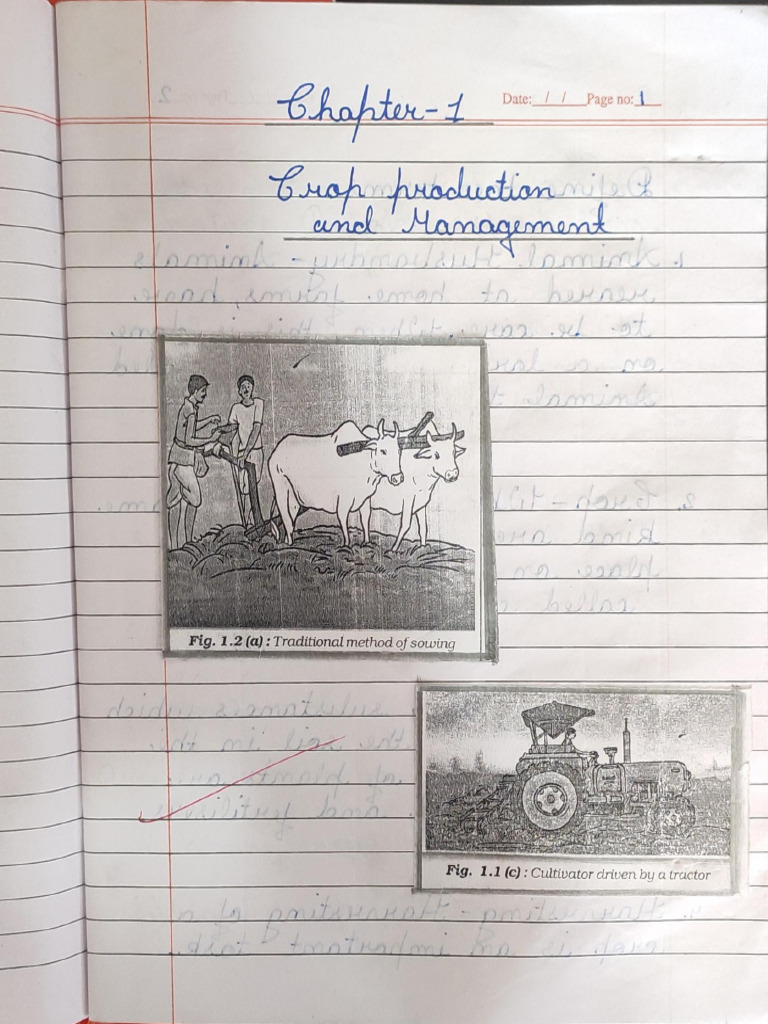 Date: / / Page no: 1
Chapter-1
Crop production
and Management
Fig. 1.2 (a) : Traditional method of sowing
Fig. 1.1 (c) : Cultivator driven by a tractor